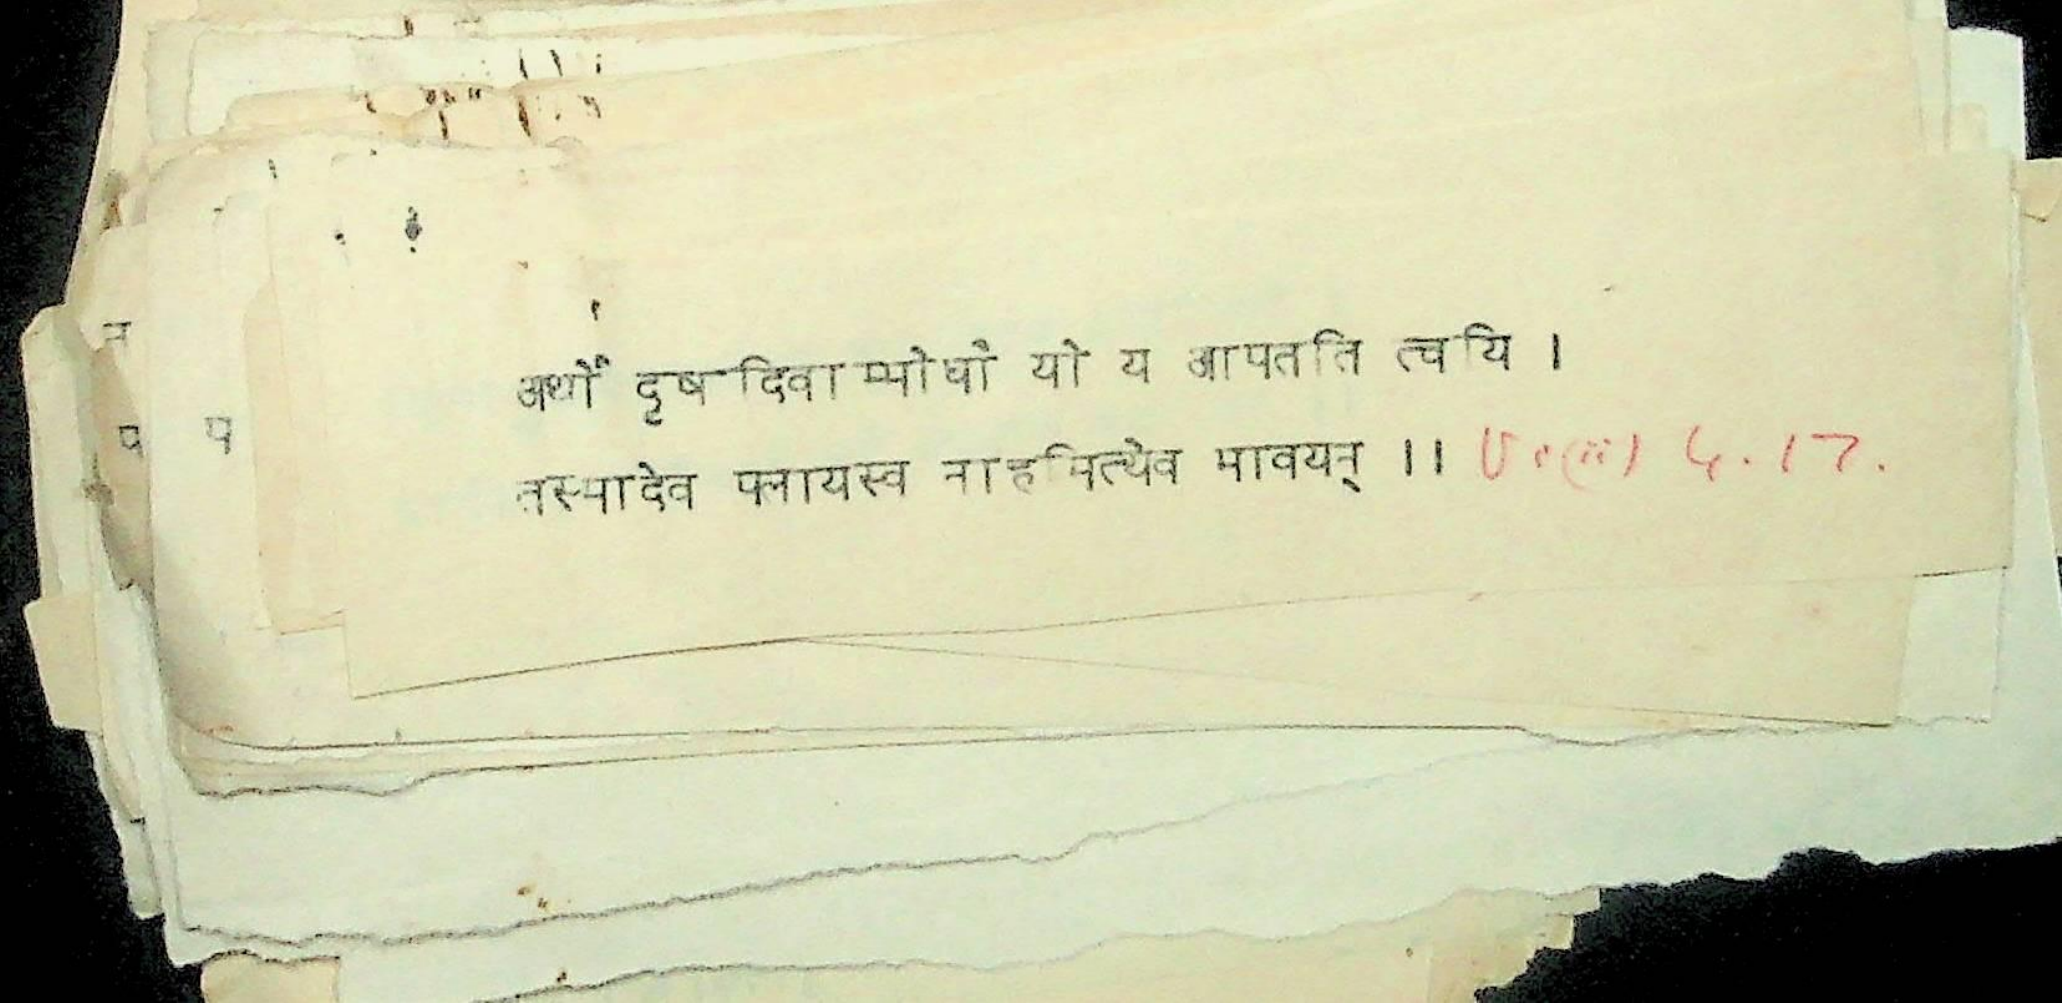 अर्थो दृषदिवाम्भोधौ यो य आपतति त्वयि ।
तस्मादेव पलायस्व नाहमित्येव भावयन् ।। U.(ii) 4.17.
न
प प